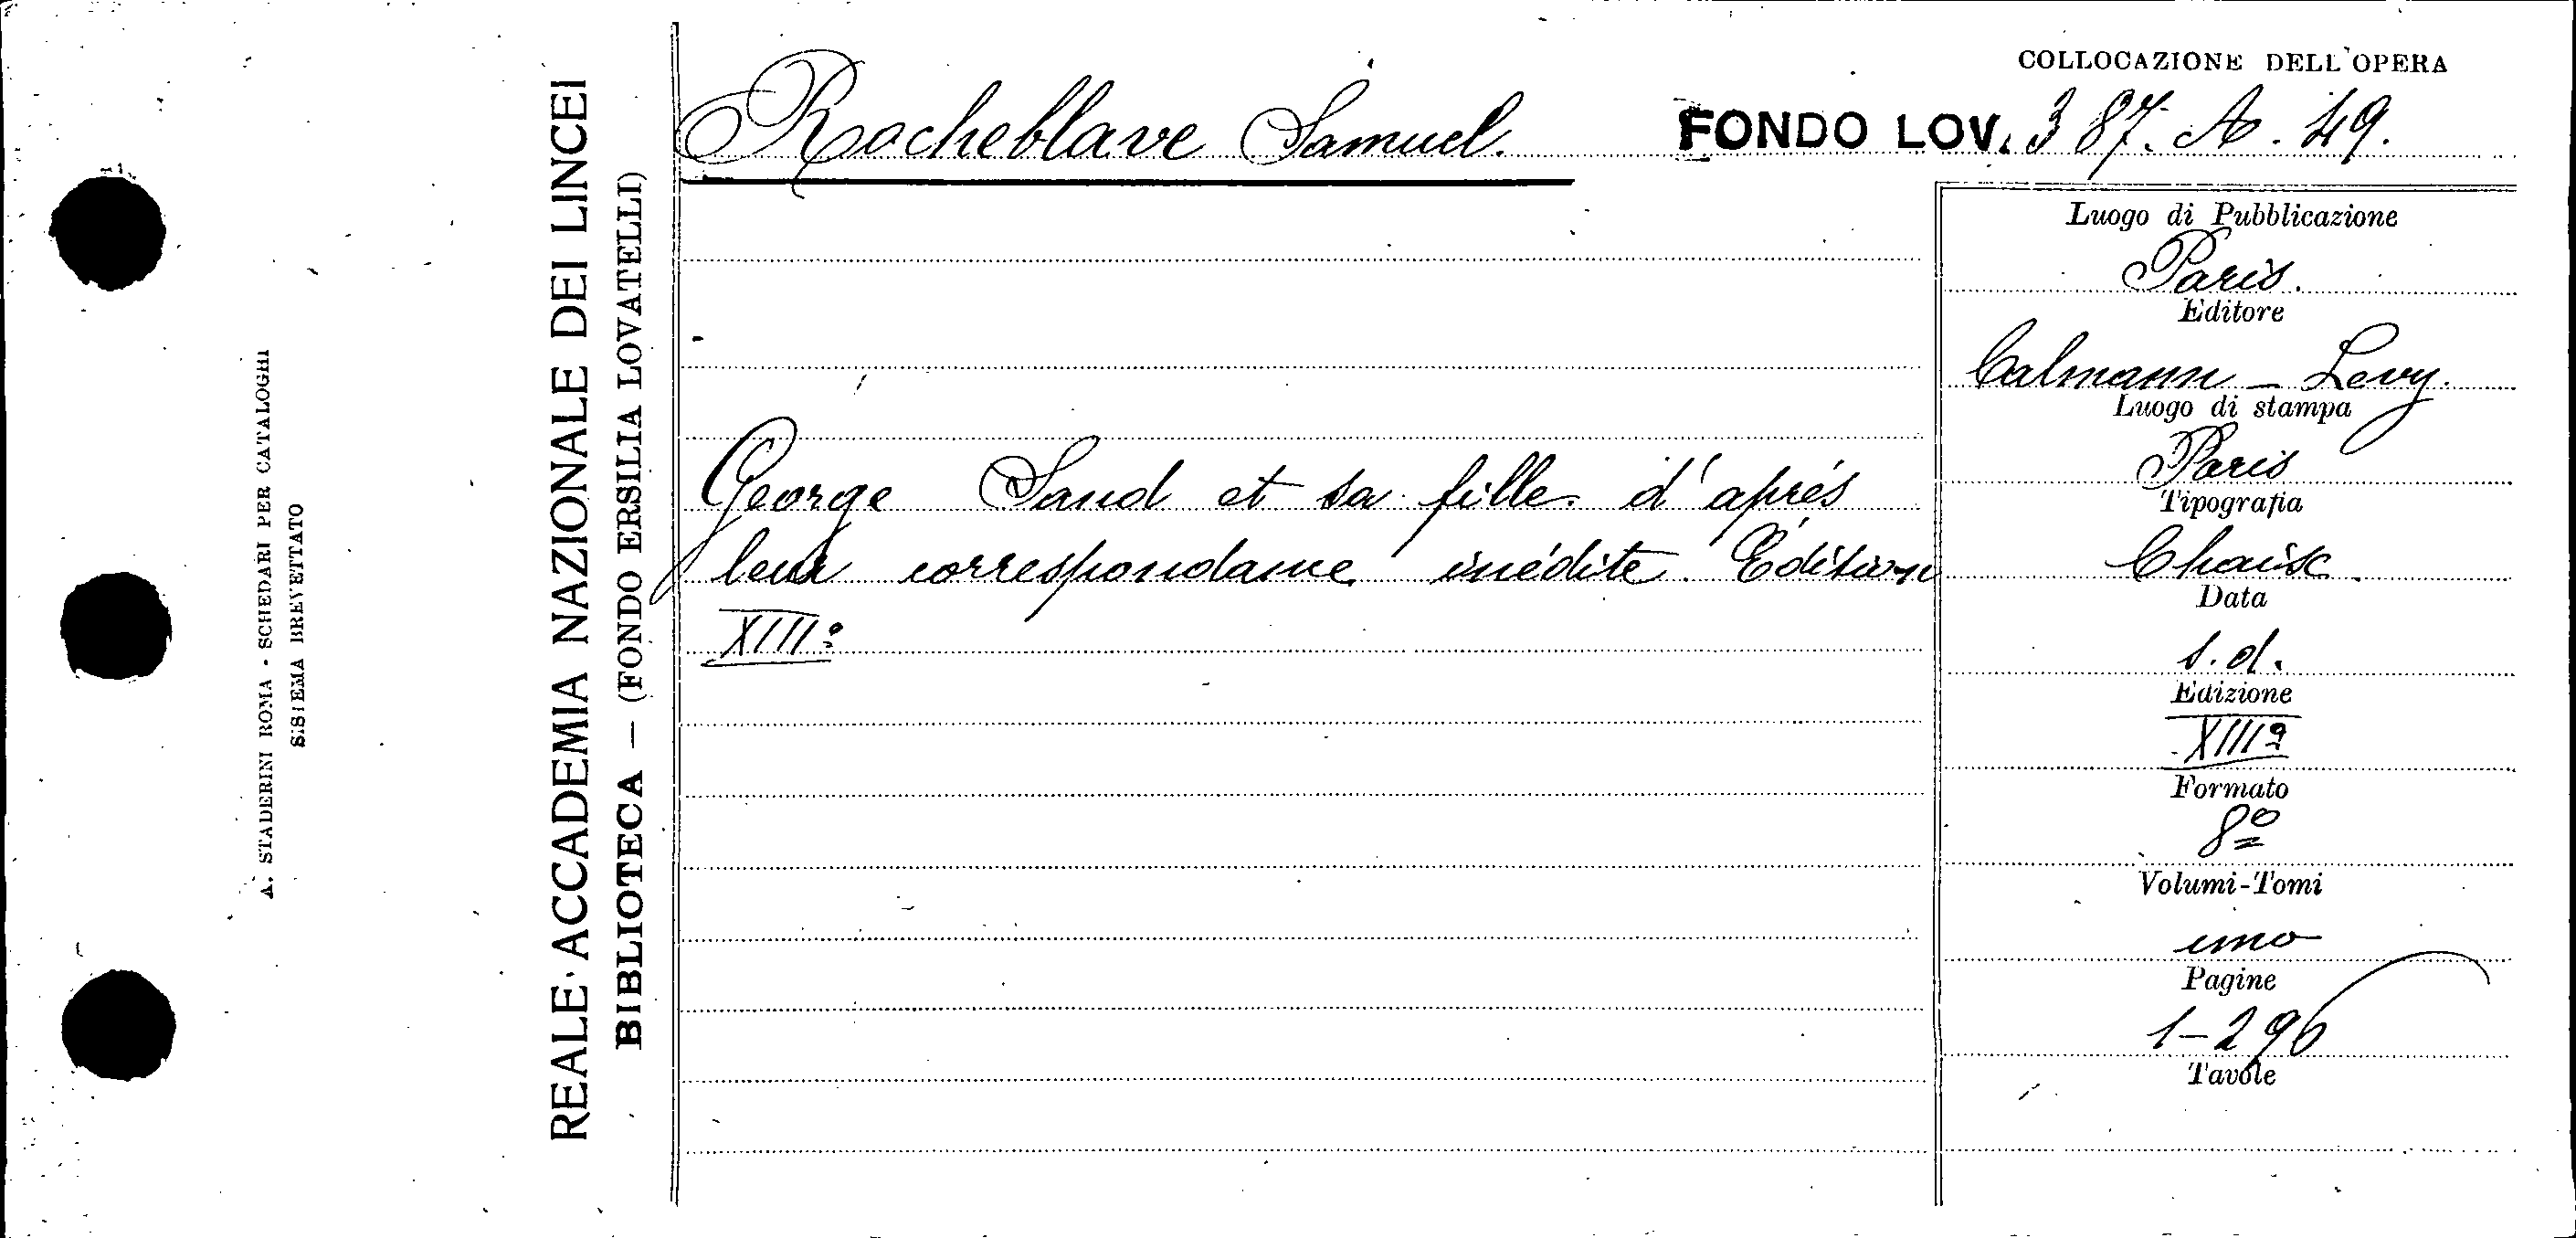 A. STADERINI ROMA - SCHEDARI PER CATALOGHI
SISTEMA BREVETTATO
REALE ACCADEMIA NAZIONALE DEI LINCEI
BIBLIOTECA — (FONDO ERSILIA LOVATELLI)
COLLOCAZIONE DELL'OPERA
Rocheblave Samuel.
FONDO LOV. 387. A. 49.
George Sand et sa fille d'aprés
leur correspondance inédite. Édition
XIIIº
Luogo di Pubblicazione
Paris.
Editore
Calmann - Levy.
Luogo di stampa
Paris
Tipografia
Chaix.
Data
s. d.
Edizione
XIIIª
Formato
8º
Volumi-Tomi
uno
Pagine
1-296
Tavole